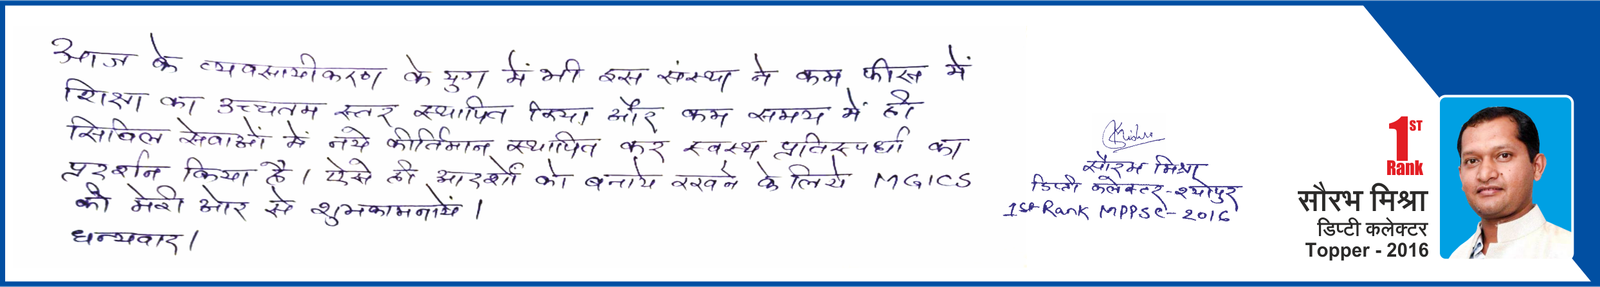 आज के व्यवसायीकरण के युग में भी इस संस्था ने कम फीस में
शिक्षा का उच्चतम स्तर स्थापित किया और कम समय में ही
सिविल सेवाओं में नये कीर्तिमान स्थापित कर स्वस्थ प्रतिस्पर्धा का
प्रदर्शन किया है। ऐसे ही आदर्शों को बनाये रखने के लिये MGICS
को मेरी ओर से शुभकामनायें।
धन्यवाद।
सौरभ मिश्रा
डिप्टी कलेक्टर-श्योपुर
1st Rank MPPSC-2016
1ST
Rank
सौरभ मिश्रा
डिप्टी कलेक्टर
Topper - 2016